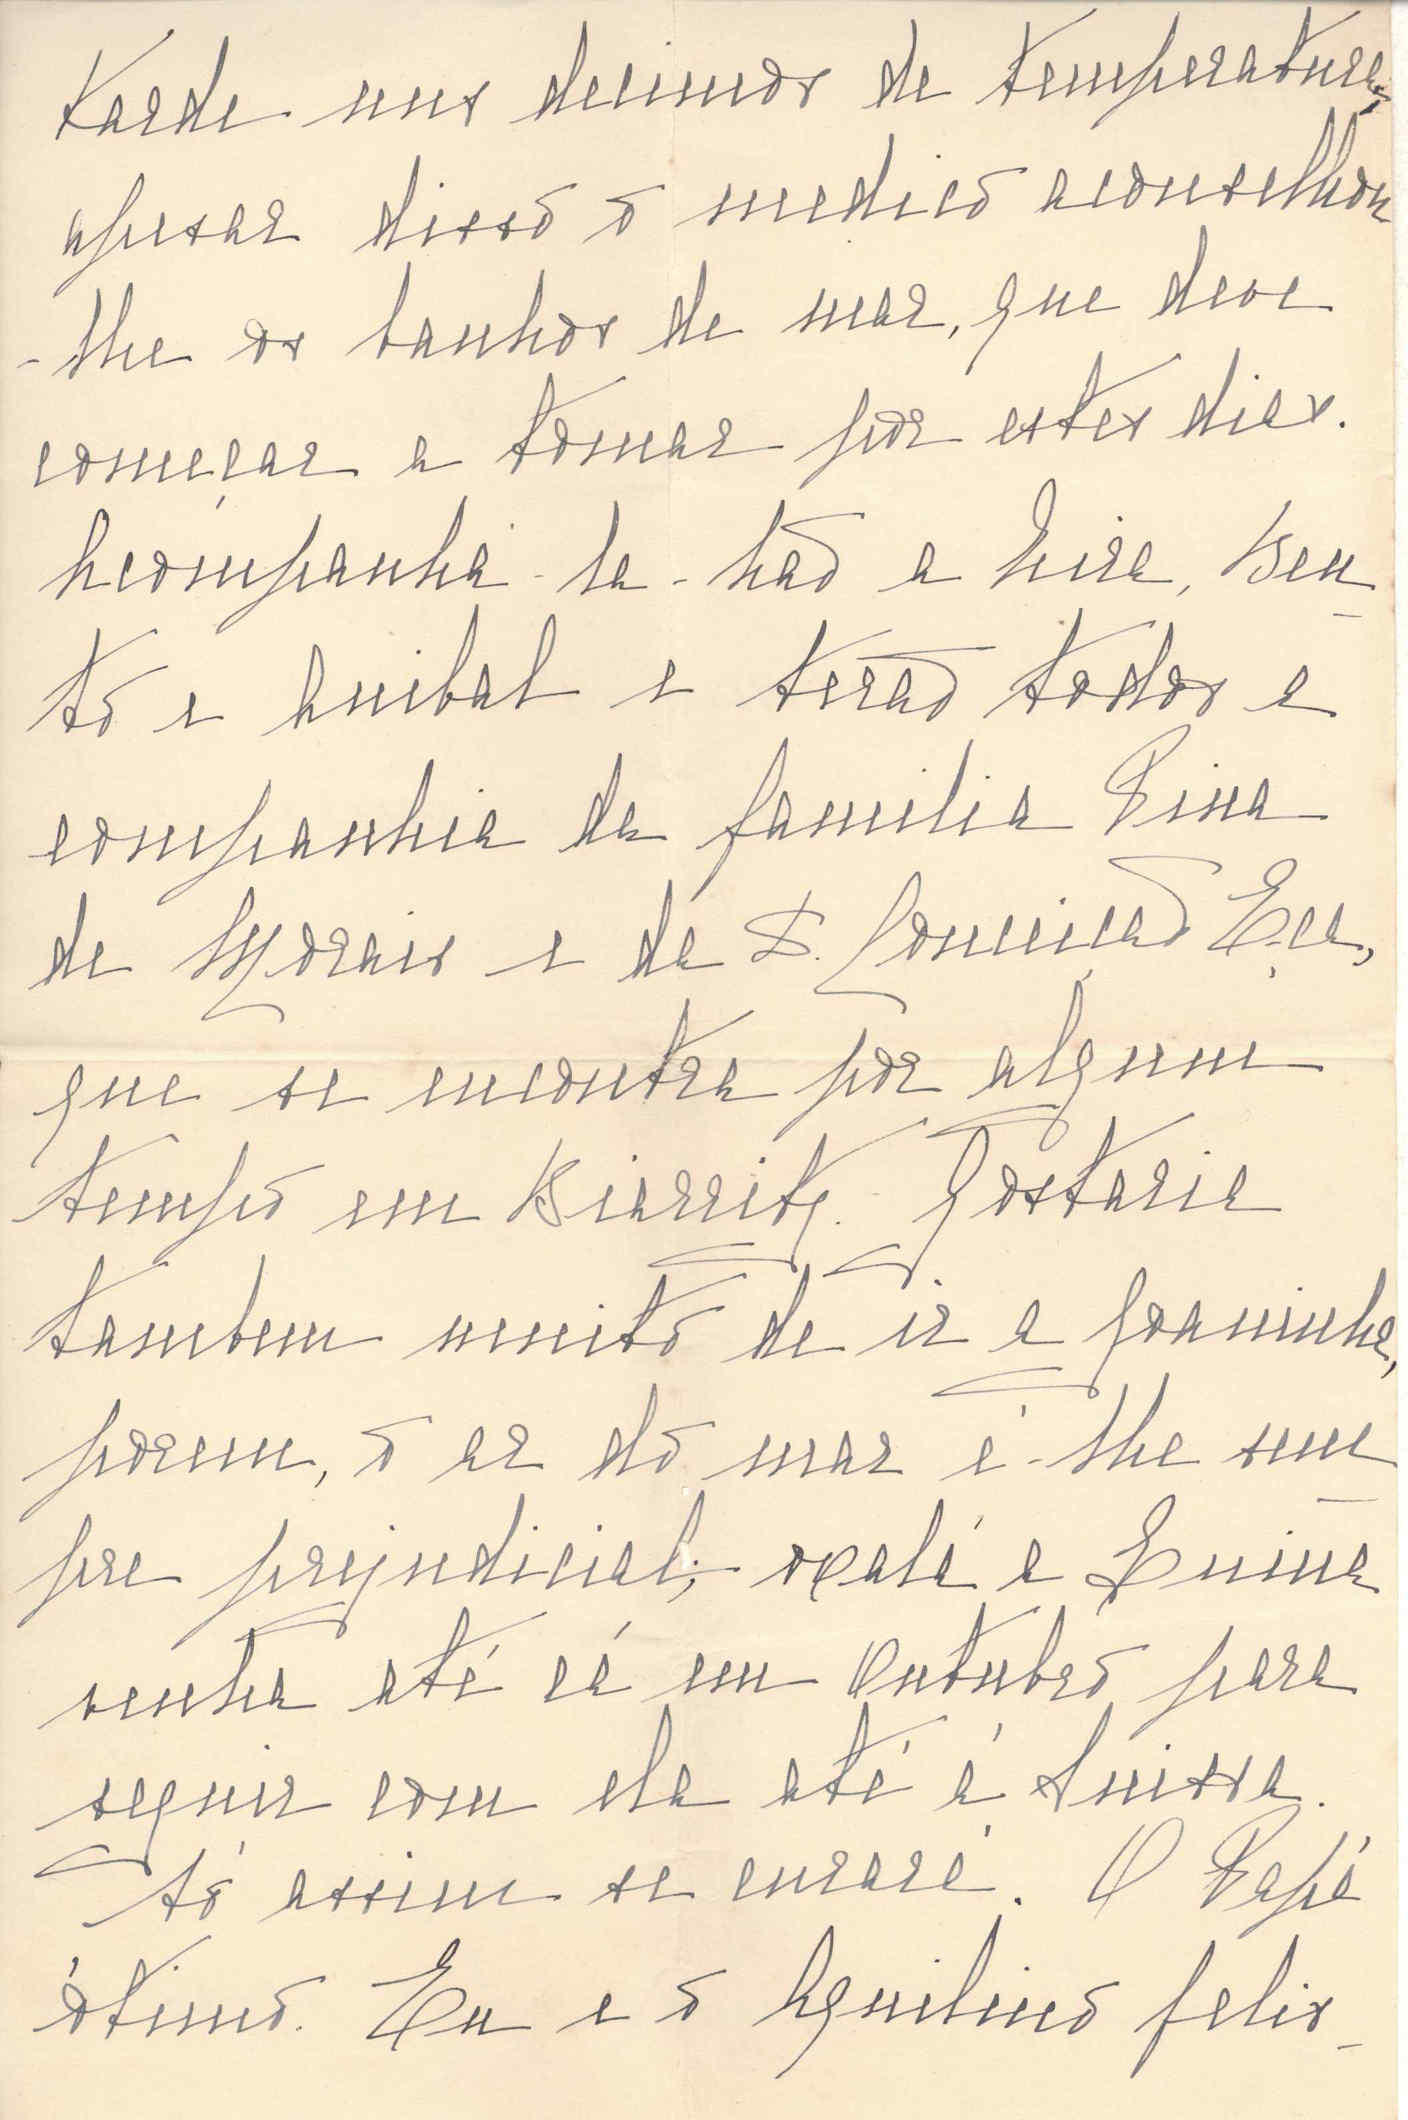 tarde uns decimos de temperatura,
apesar disso o medico aconselhou
-lhe os banhos de mar, que deve
começar a tomar por estes dias.
Acompanhá-la-hão a Mira, Ben-
to e Anibal e terão todos a
companhia da familia Pina
de Morais e da D. Conceição Eça,
que se encontra por algum
tempo em Biarritz. Gostaria
tambem muito de ir a Joaninha,
porem, o ar do mar é-lhe sem-
pre prejudicial; oxalá a Zenina
venha até cá em Outubro para
seguir com ela até á Suissa.
Só assim se curará. O Papá
ótimo. Eu e o Aquilino feliz-